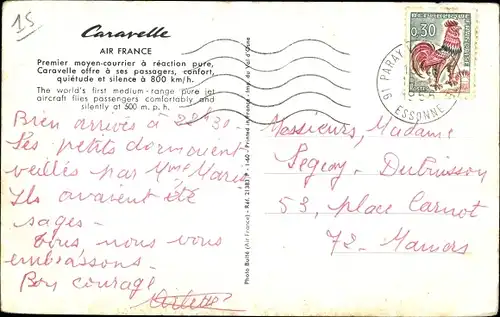 15
Caravelle
AIR FRANCE
Premier moyen-courrier à réaction pure,
Caravelle offre à ses passagers, confort,
quiétude et silence à 800 km/h.
The world's first medium-range pure jet
aircraft flies passengers comfortably and
silently at 500 m.p.h.
Bien arrivés à 22h30.
Les petits dormaient
veillés par Mme Marie
Ils avaient été
sages -
Tous nous vous
embrassons -
Bon courage
Photo Buité (Air France) - Réf. 21383 P - 1-60 - Printed in France - Imp. du Val d'Oise
0,30
91 PARAY
ESSONNE
Messieurs, Madame
Dubuisson
53, place Carnot
72 - Mamers